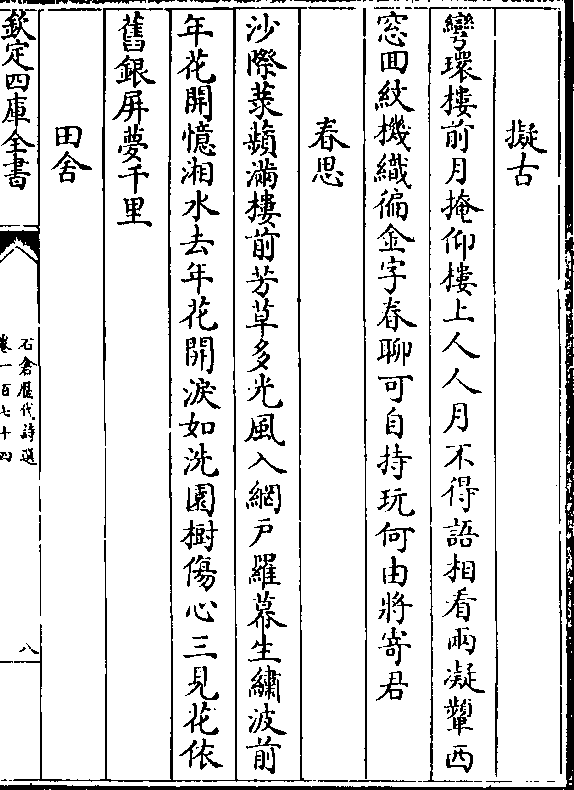 擬古
彎環樓前月掩仰樓上人人月不得語相看兩凝顰西
窓回紋機織徧金字春聊可自持玩何由將寄君
春思
沙際蒌蘋滿樓前芳草多光風入網戶羅幕生繡波前
年花開憶湘水去年花開淚如洗園樹傷心三見花依
舊銀屏夢千里
田舍
欽定四庫全書
石倉歷代詩選
卷一百七十四
八